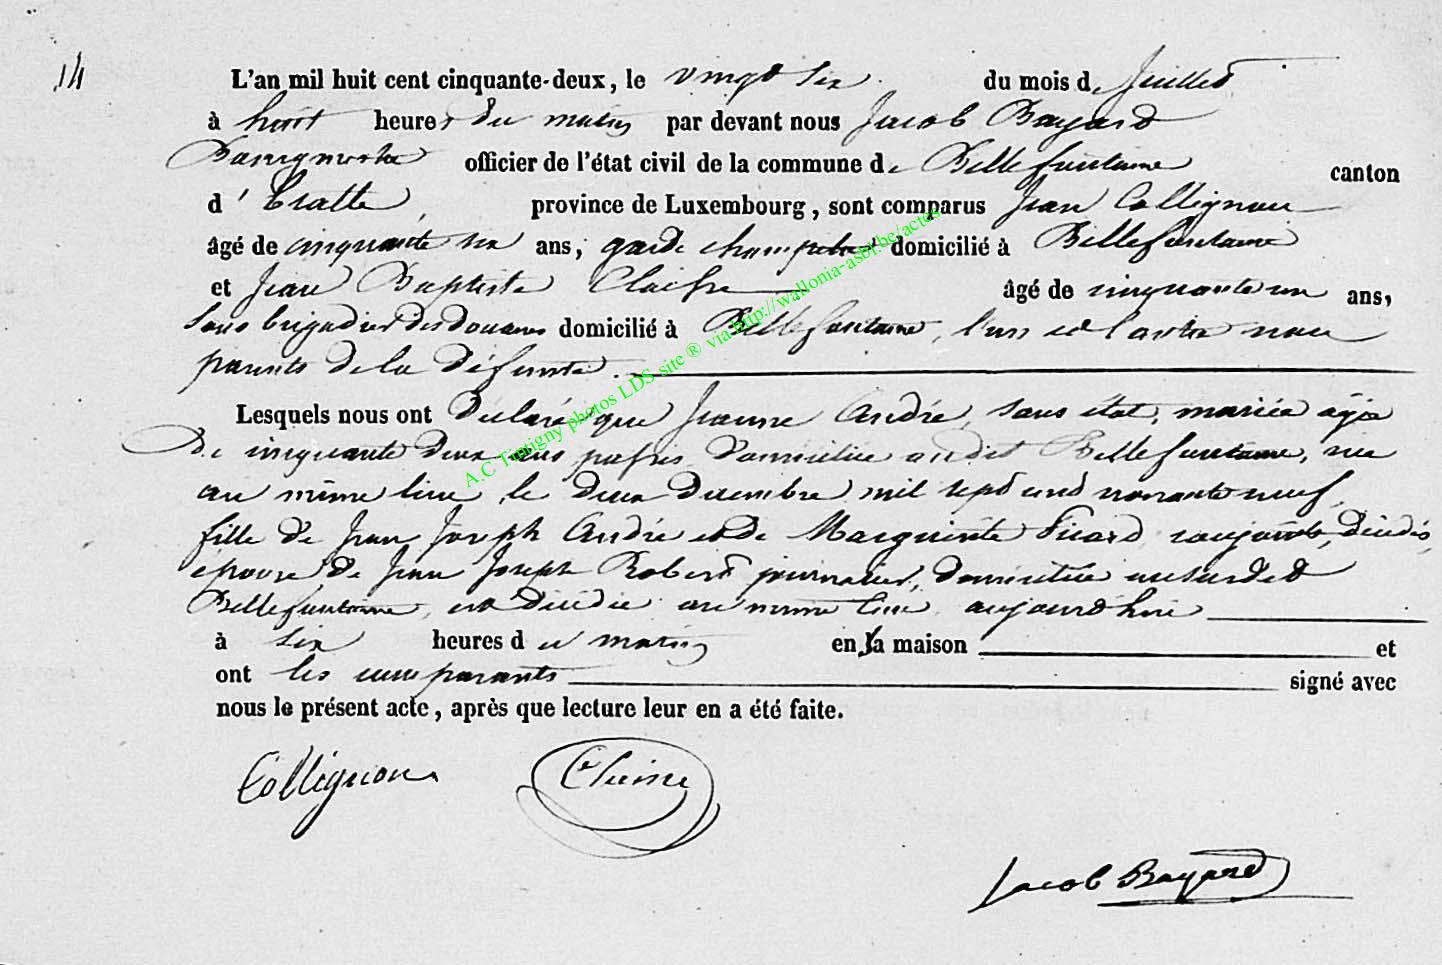 14
L'an mil huit cent cinquante-deux, le vingt six du mois de Juillet
à huit heures du matin par devant nous Jacob Bayard
Bourgmestre officier de l'état civil de la commune de Bellefontaine canton
d'Etalle province de Luxembourg, sont comparus Jean Collignon
âgé de cinquante six ans, garde champetre domicilié à Bellefontaine
et Jean Baptiste âgé de cinquante un ans,
sous brigadier des douanes domicilié à Bellefontaine, l'un et l'autre non
parents de la défunte.
Lesquels nous ont déclaré que Jeanne André, sans état, mariée âgée
de cinquante deux ans domiciliée audit Bellefontaine, née
au même lieu le deux decembre mil sept cent nonante neuf,
fille de Jean Joseph André et de Marguerite Picard conjoints, décédés,
épouse de Jean Joseph Robert journalier, domicilié susdit
Bellefontaine, est décédée au même lieu aujourd'hui
à six heures du matin en sa maison et
ont les comparants signé avec
nous le présent acte, après que lecture leur en a été faite.
Collignon
Jacob Bayard
A.C Tintigny photos LDS site ® via http://wallonia-asbl.be/actes